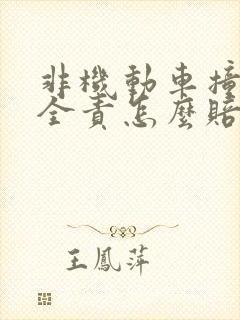 非機動車撞
全責怎麼賠
王鳳萍